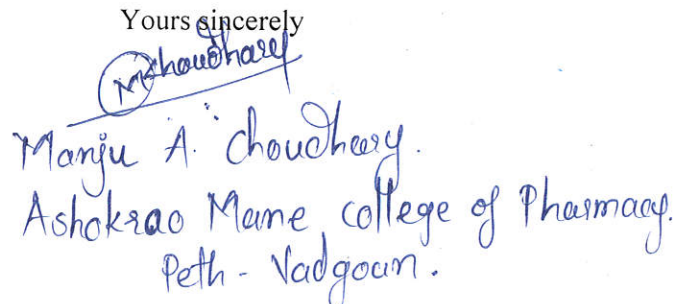 Yours sincerely
Mchoudhary
Manju A. Choudhary.
Ashokrao Mane college of Pharmacy.
Peth - Vadgoan.